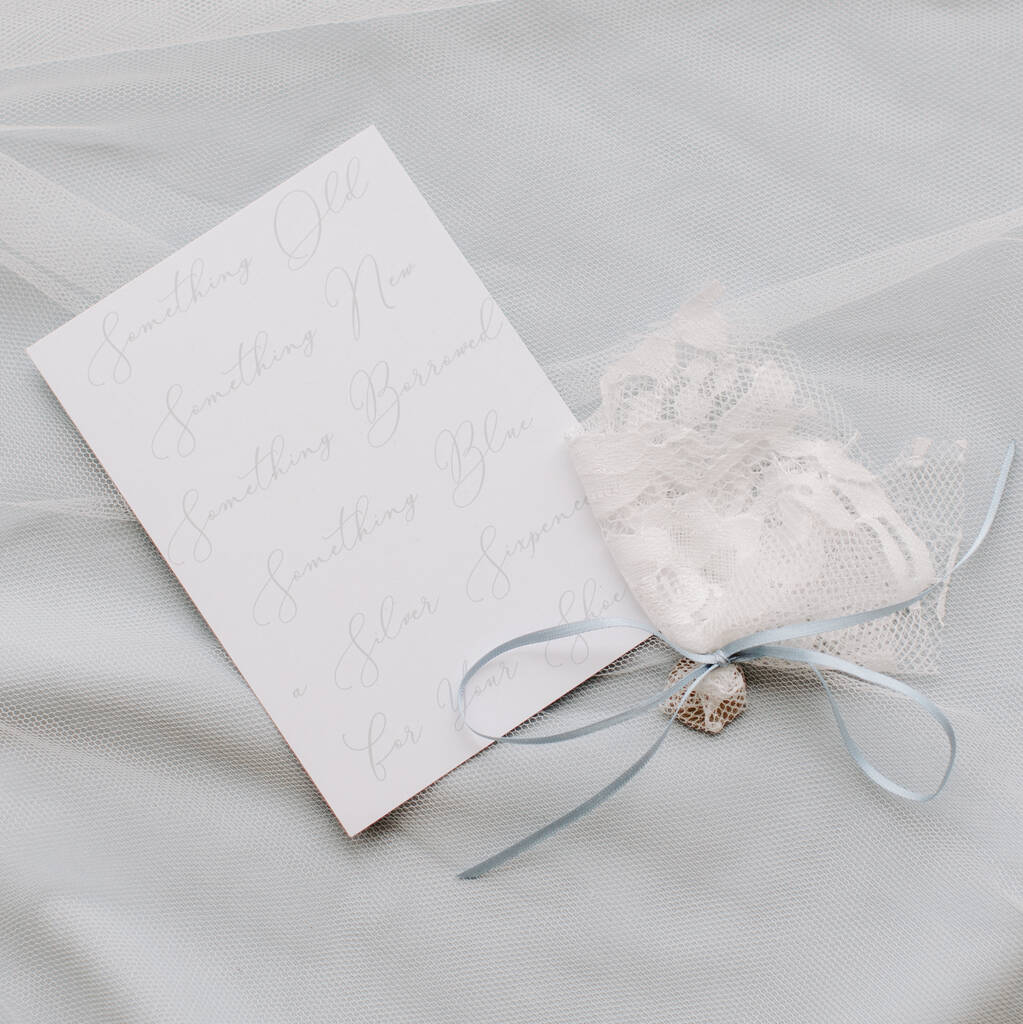 Something Old
Something New
Something Borrowed
Something Blue
a Silver Sixpence
for Your Shoe